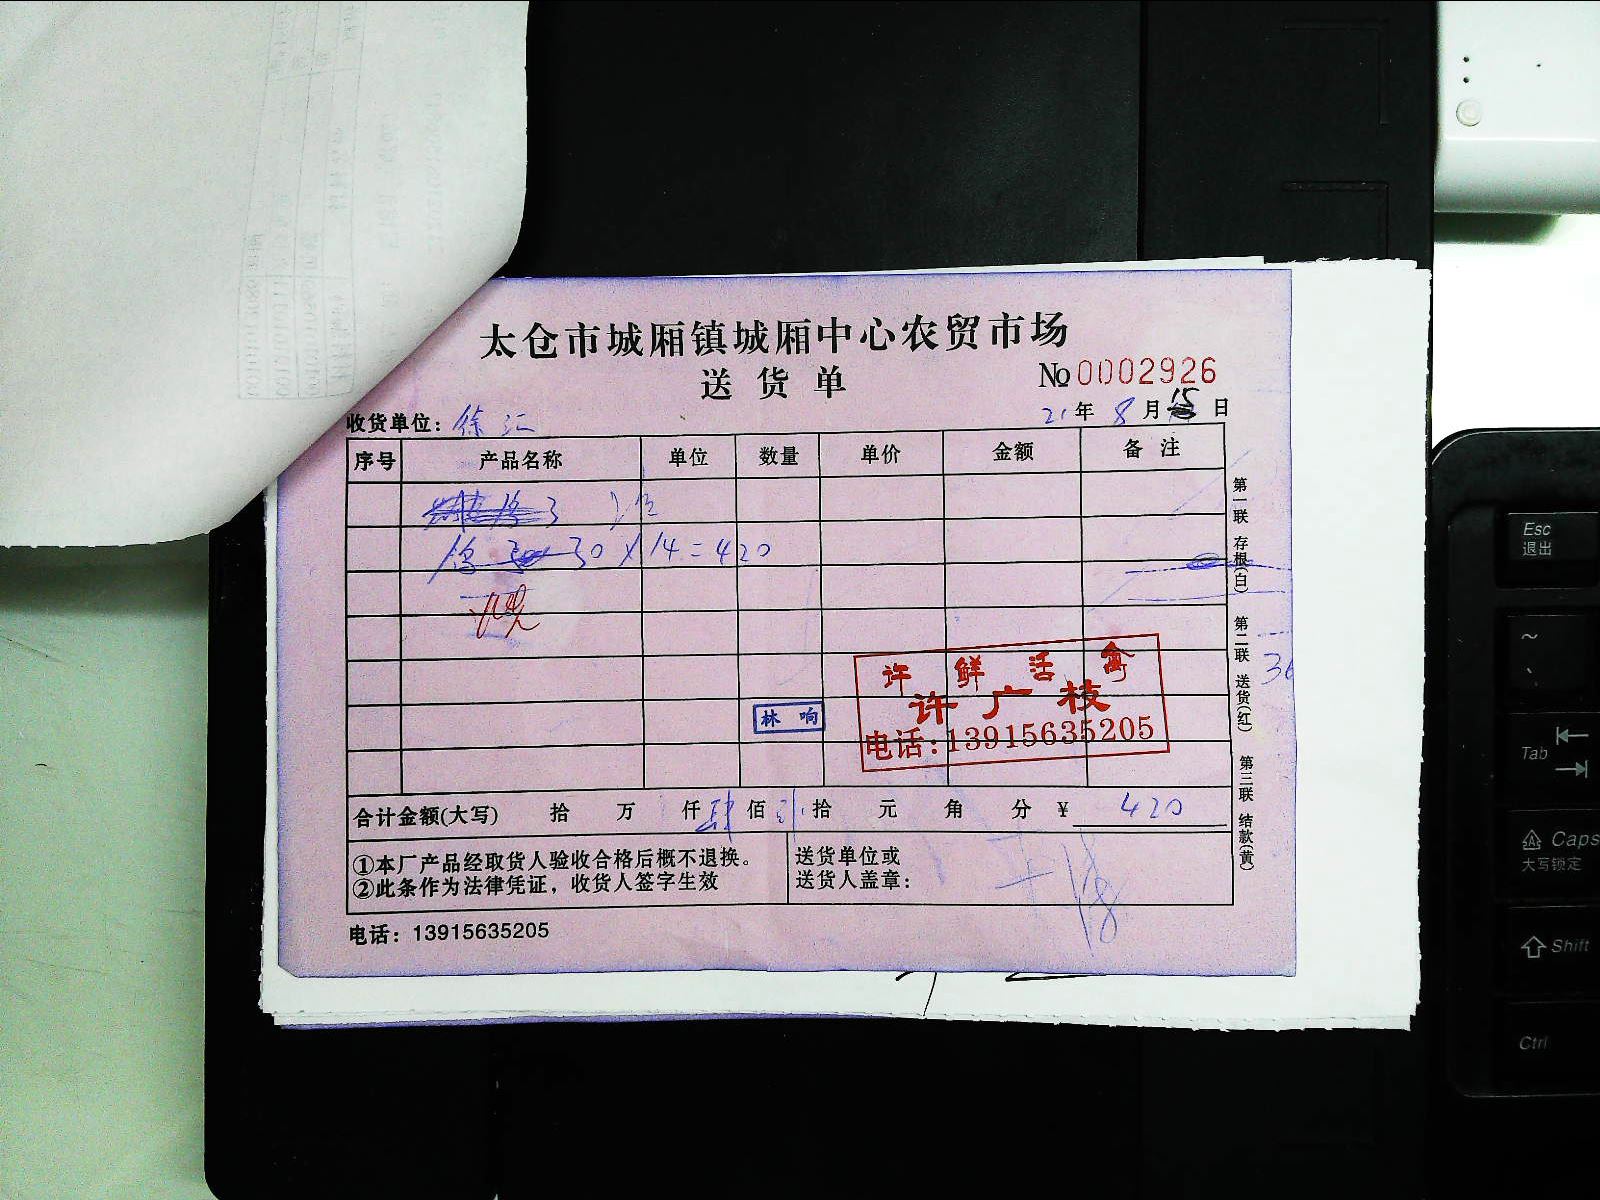 太仓市城厢镇城厢中心农贸市场
送货单
№0002926
收货单位：徐汇
21年 8月 15日
序号 产品名称 单位 数量 单价 金额 备注
30 × 14 = 420
许 鲜 活 禽
许广枝
电话：13915635205
林 响
合计金额(大写) 拾 万 仟 肆佰 拾 元 角 分 ¥ 420
①本厂产品经取货人验收合格后概不退换。
②此条作为法律凭证，收货人签字生效
送货单位或
送货人盖章：
电话：13915635205
第一联 存根(白)
第二联 送货(红)
第三联 结款(黄)
36
Esc
退出
~
Tab
Caps
大写锁定
Shift
Ctrl